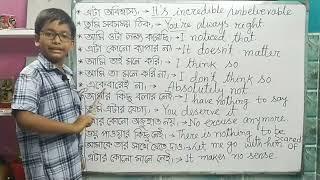 এটা অবিশ্বাস্য, → It's incredible/unbelievable
তুমি সবসময় ঠিক, → You're always right
আমি ওটা লক্ষ্য করেছি, → I noticed that
এটা কোনো ব্যাপার না → It doesn't matter
আমি তাই মনে করি → I think so
আমি তা মনে করি না, → I don't think so
একেবারেই না, → Absolutely not
আমার কিছু বলার নেই, → I have nothing to say
তুমি এটার যোগ্য, → You deserve it
আর কোনো অজুহাত নয়, → No excuse anymore.
ভয় পাওয়ার কিছু নেই, → There is nothing to be scared of
আমাকে তার সাথে যেতে দাও → Let me go with him
এটার কোনো মানে নেই, → It makes no sense.